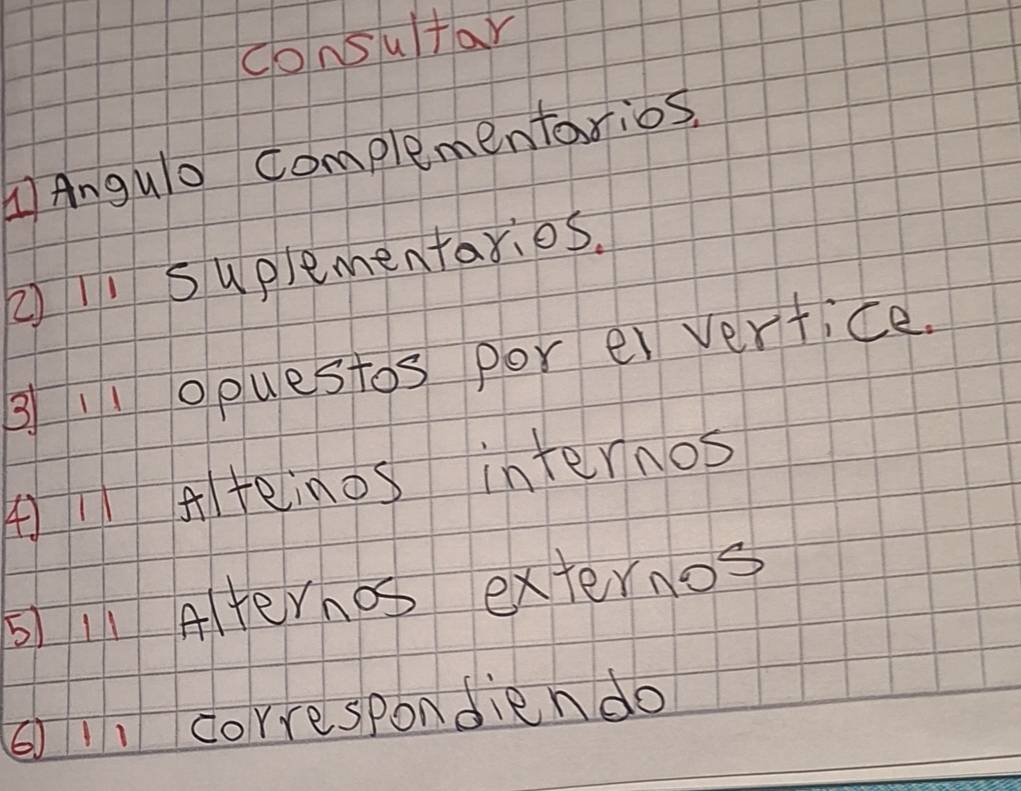 consultar
1) Angulo complementarios.
2) 11 suplementarios.
3) 11 opuestos por el vertice.
4) 11 Alteinos internos
5) 11 Alternos externos
6) 11 correspondiendo